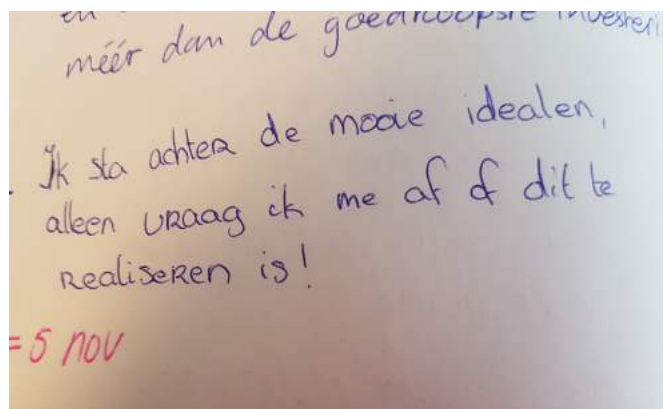 en
méér dan de goedkoopste investeri
Ik sta achter de mooie idealen,
alleen vraag ik me af of dit te
realiseren is!
= 5 nov